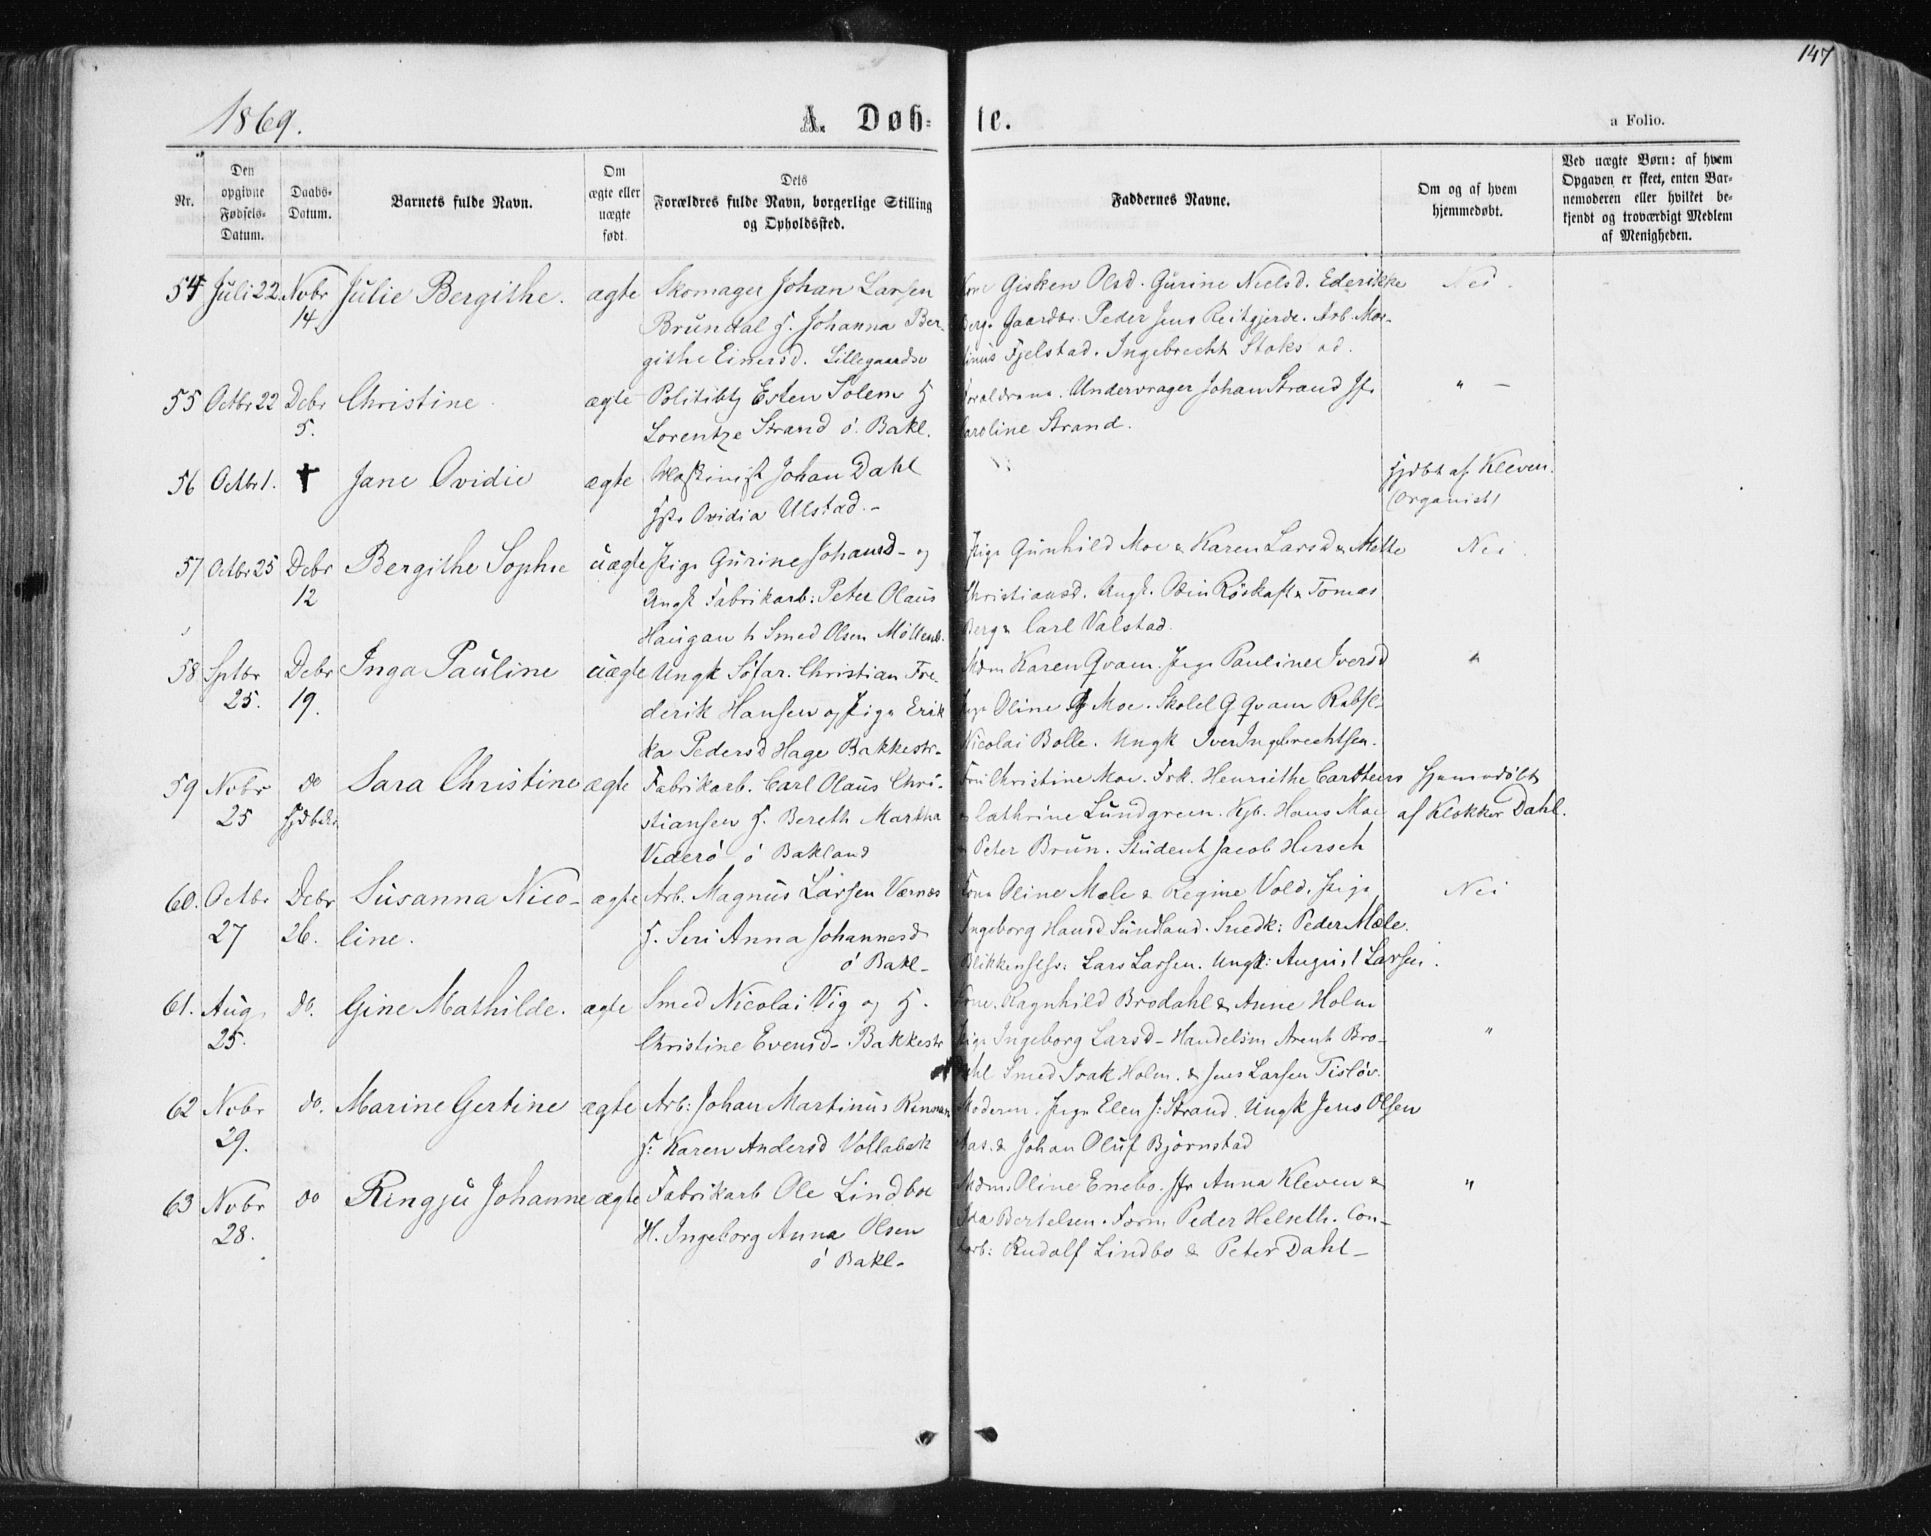 147
1869.
A. Døb-
te.
a Folio.
Nr.
Den opgivne Fødsels-Datum.
Daabs-Datum.
Barnets fulde Navn.
Om ægte eller uægte født.
Dets Forældres fulde Navn, borgerlige Stilling og Opholdssted.
Faddernes Navne.
Om og af hvem hjemmedøbt.
Ved uægte Børn: af hvem Opgaven er skeet, enten Barnemoderen eller hvilket bekjendt og troværdigt Medlem af Menigheden.
54 Juli 22. Nvbr Julie Bergithe. ægte Skomager Johan Larsen Kone Gisken Olsd. Gurine Nielsd. Ederikke Nei.
14. Brundal H. Johanna Ber- Berg. Gaardbr. Peder Jens Reitgjerde. Arb. Mar-
githe Einersd. Lillegaardsv tinus Fjelstad. Ingebrecht Stoks ad.
55 Octbr 22 Debr Christine. ægte Politibtj Esten Solem H Forældrene. Undervrager Johan Strand Jfr " –
5. Lorentze Strand ö. Bakl. Caroline Strand.
56 Octbr 1. † Jane Ovidie ægte Maskinist Johan Dahl Hjdbt af Kleven.
Ovidia Ulstad. – (Organist)
57 Octbr 25 Debr Bergithe Sophie uægte Pige Gurine Johansd – og Pige Gunhild Moe & Karen Larsd & Mette Nei.
12 Ungk Fabrikarb: Peter Olaus Christiansd. Ungk. Odin Röskaft & Tomas
Haugan h Smed Olsen Möllenb. Berg & Carl Valstad.
58 Sptbr Debr Inga Pauline uægte Ungk Söfar. Christian Fre- Mdm Karen Qvam. Pige Pauline Iversd "
25. 19. derik Hansen og Pige Erik Pige Oline Moe. Skolel G Qvam Rebsl.
ka Pedersd Hage Bakkestr. Nicolai Bolle. Ungk Iver Ingebrechtsen.
59 Nvbr do Sara Christine ægte Fabrikarb. Carl Olaus Chri- Fru Christine Moe. Frk. Henriethe Hjemmedöbt
25 Hjdbt stiansen H. Bereth Martha og Cathrine Lundgreen. Kjb. Hans Moe af Klokker Dahl.
Viderö ö Bakland & Peter Brun. Student Jacob Hirsch
60. Octbr Debr Susanna Nico- ægte Arb. Magnus Larsen Værnes Kone Oline Mæle & Regine Vold. Pige Nei
27 26. line. H. Seri Anna Johannesd Ingeborg Hansd Sundland. Snedk: Peder Mæle.
ö Bakl – Blikkenslsv: Lars Larsen. Ungk: August Larsen.
61. Aug. do. Gine Mathilde. ægte Smed Nicolai Vig og H. Kone. Ragnhild Brodahl & Anne Holm "
25. Christine Evensd – Bakkestr Pige Ingeborg Larsd – Handelsm Arent Bro-
dahl Smed Isak Holm. & Jens Larsen Tislöv.
62 Nvbr do. Marine Gertine ægte Arb: Johan Martinus Moderen. Pige Elen J: Strand. Ungk Jens Olsen
29. H. Karen Andersd Vollabak Aas. & Johan Oluf Björnstad
63 Nvbr do Ringju Johanne ægte Fabrikarb Ole Lindboe Mdm. Oline Enebo. Jfr Anna Kleven & "
28. H. Ingeborg Anna Olsen Ida Bertelsen. Form Peder Helseth. Con-
ö Bakl. torb: Rudolf Lindbo & Peter Dahl –